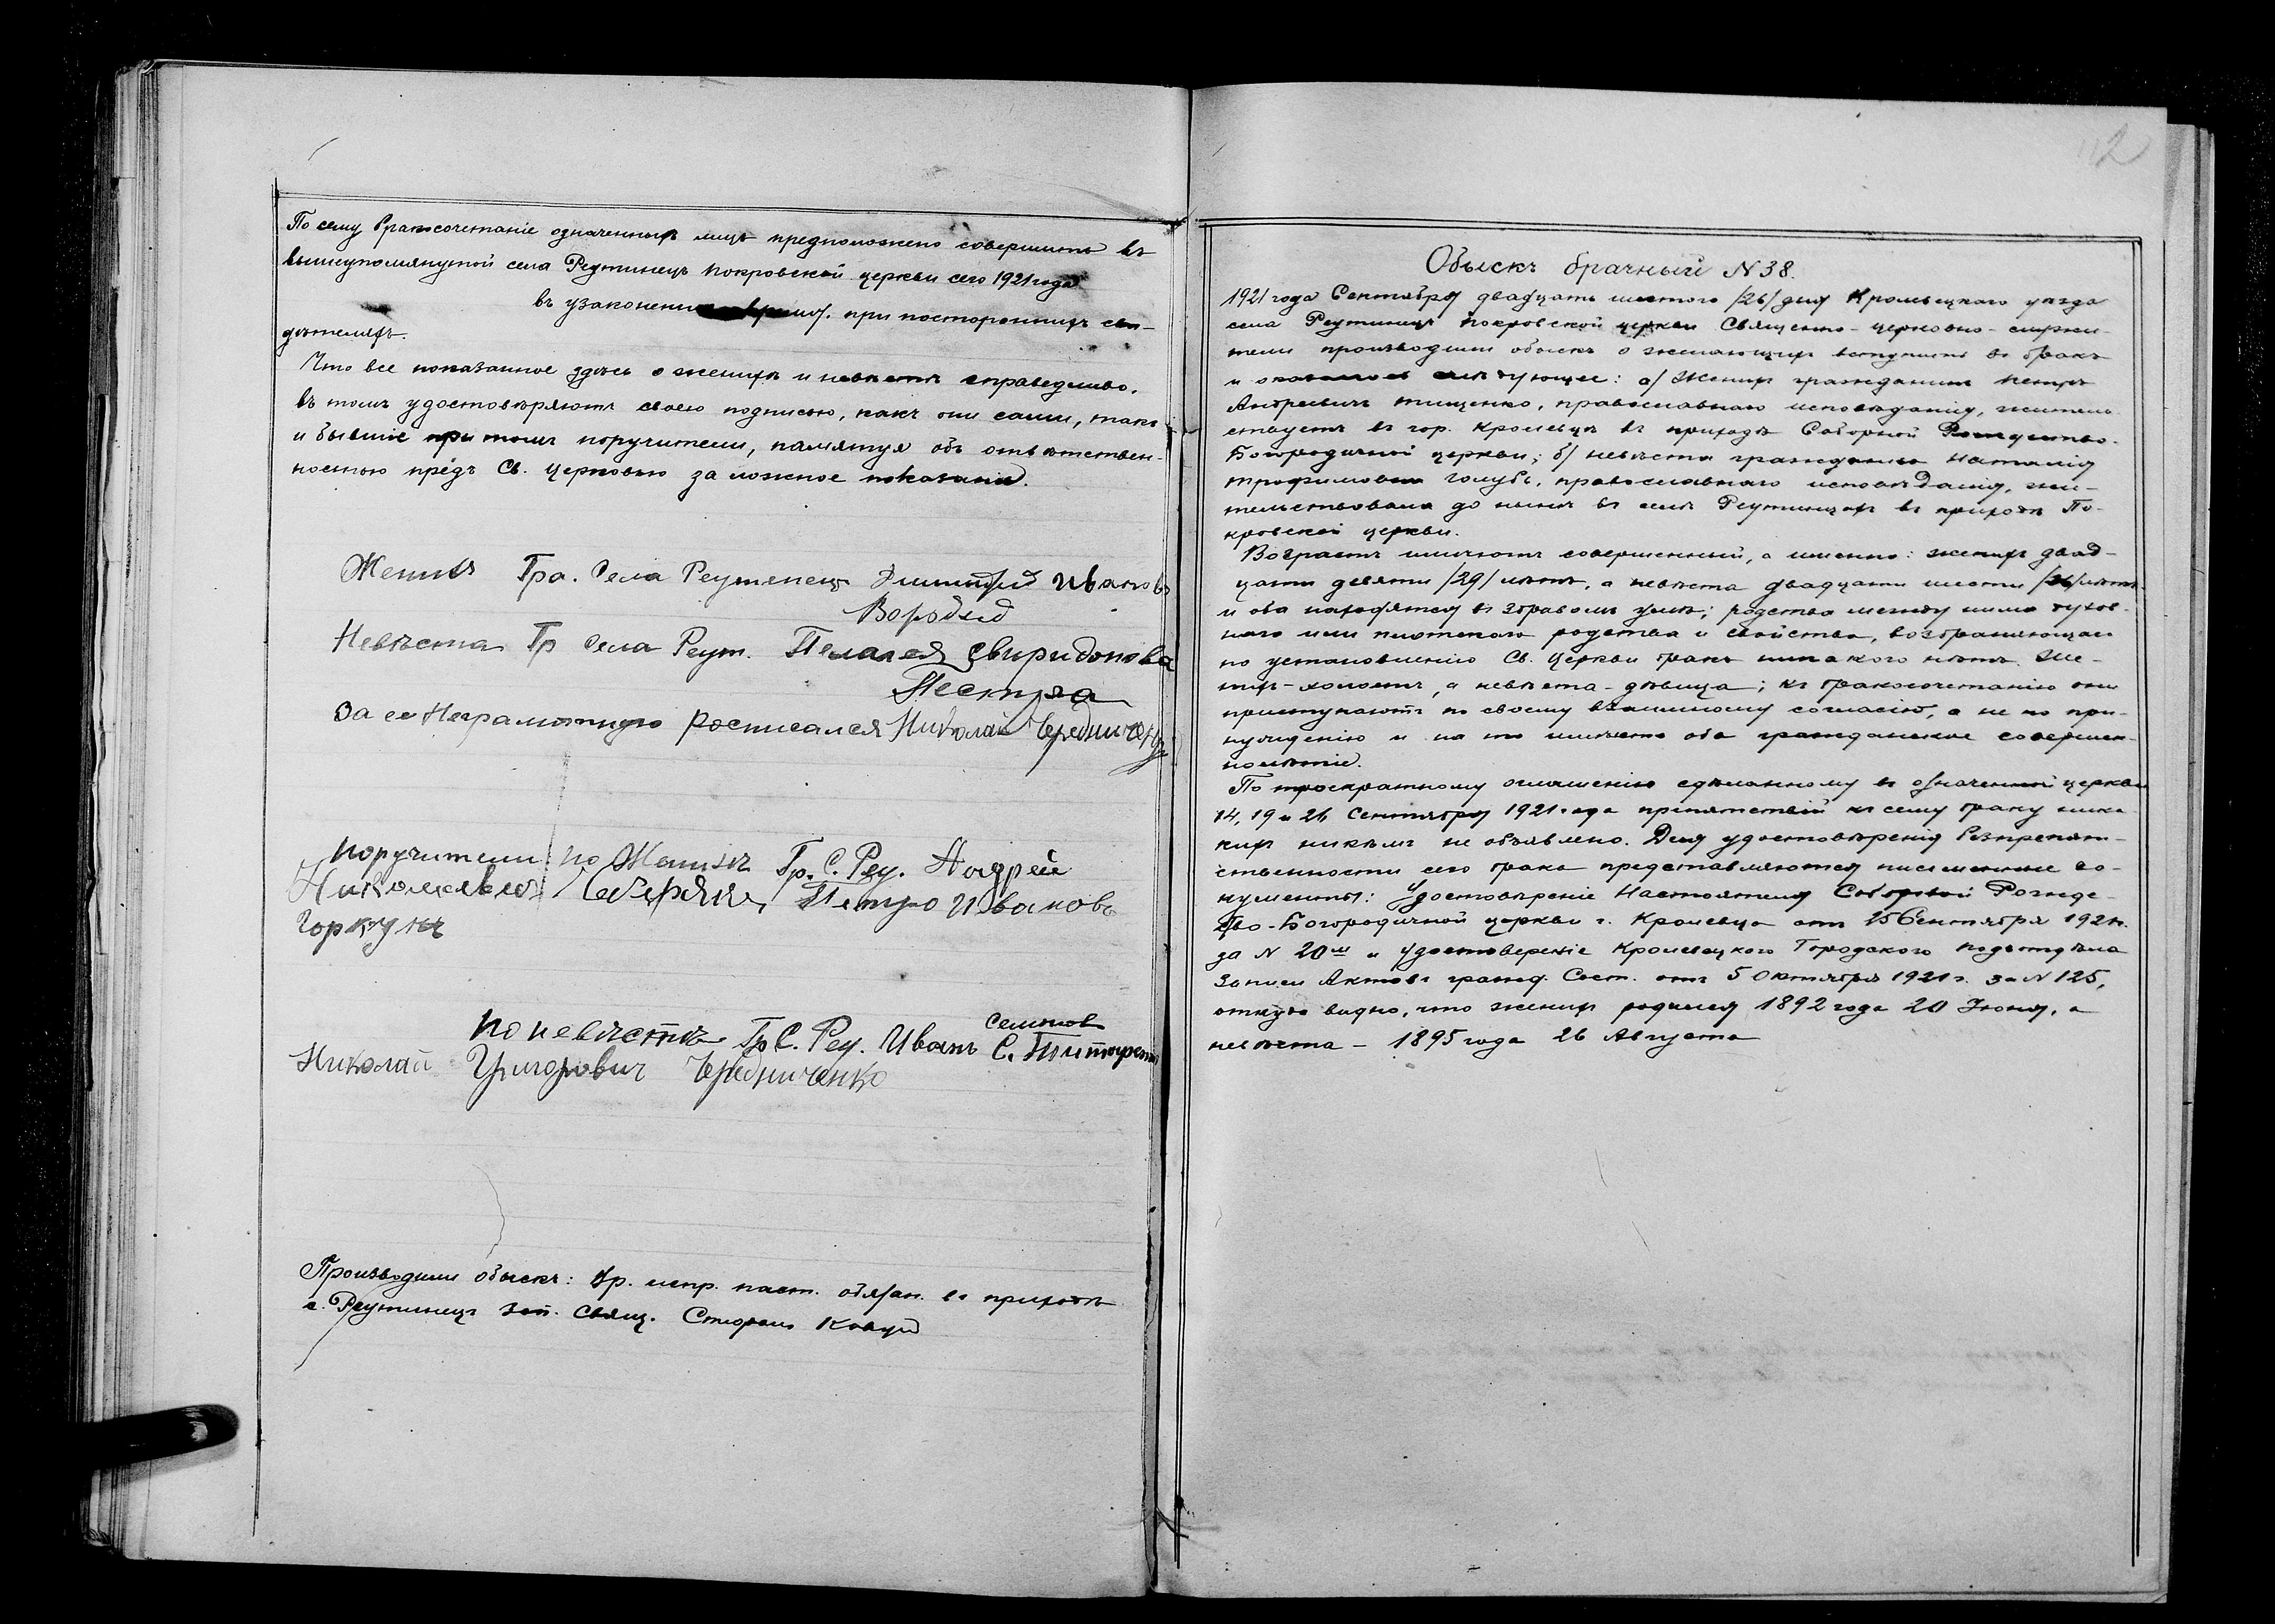 По сему бракосочетаніе означенныхъ лицъ предположено совершить въ
вышеупомянутой села Реутинецъ Покровской церкви сего 1921 года
въ узаконенное время. при постороннихъ сви-
дѣтеляхъ.
Что все показанное здѣсь о женихѣ и невѣстѣ справедливо,
въ томъ удостовѣряютъ своею подписью, какъ они сами, такъ
и бывшіе при томъ поручители, памятуя объ отвѣтствен-
ностью прёдъ Св. Церковью за ложное показаніе.
Женихъ Гра. Села Реутенец Димитрий Ивановъ
Невѣста Гр Села Реут. Пелагея Свиридонова
Пестряа
За ее Неграмотную росписался Николай Чередниченко
Поручители по Женихѣ Гр. С. Реу. Андрей
Николаевич Петро Ивановъ
Горкунъ
По невѣстѣ Гр С. Реу. Иванъ С.
Семенов
Николай Григорович Чередниченко
Производили обыскъ: Вр. испр. наст. обязан. въ приходѣ
с. Реутинецъ зап. Свящ. Стефанъ
112
Обыскъ брачный N 38.
1921 года Сентября двадцать шестого /26/ дня Кролевецкаго уѣзда
села Реутинецъ Покровской церкви Священно-церковно-служи-
тели производили обыскъ о желающихъ вступить въ бракъ
и оказалось слѣдующее: а/ Женихъ гражданинъ Петръ
Андреевичъ Тищенко, православнаго исповѣданія, житель-
ствуетъ въ гор. Кролевцѣ въ приходѣ Соборной Рождество-
Богородичной церкви; б/ невѣста гражданка Наталія
Трофимовна Голубь, православнаго исповѣданія, жи-
тельствовала до нынѣ въ селѣ Реутинцахъ въ приходѣ По-
кровской церкви.
Возрастъ имѣютъ совершенный, а именно: женихъ двад-
цати девяти /29/ лѣтъ, а невѣста двадцати шести /26/ лѣтъ
и оба находятся въ здравомъ умѣ; родства между ними духов-
наго или плотскаго родства и свойства, возбраняющаго
по установленію Св. Церкви бракъ никакого нѣтъ. Же-
нихъ-холостъ, а невѣста-дѣвица; къ бракосочетанію они
приступаютъ по своему взаимному согласію, а не по при-
нужденію и на то имѣютъ оба гражданское совершен-
нолѣтіе.
По троекратному оглашенію сдѣланному въ означенной церкви
14, 19 и 26 Сентября 1921 года препятствій къ сему браку ника-
кихъ никѣмъ не объявлено. Для удостовѣренія безпрепят-
ственности сего брака представляются письменные до-
кументы: Удостовѣреніе Настоятеля Соборной Рожде-
ство-Богородичной церкви г. Кролевца отъ 25 Сентября 1921 г.
за N 20 и Удостовереніе Кролевецкого Городского подъотдѣла
Записи Актовъ гражд. Сост. отъ 5 Октября 1921 г. за N 125,
откуда видно, что женихъ родился 1892 года 20 Іюня, а
невѣста - 1895 года 26 Августа